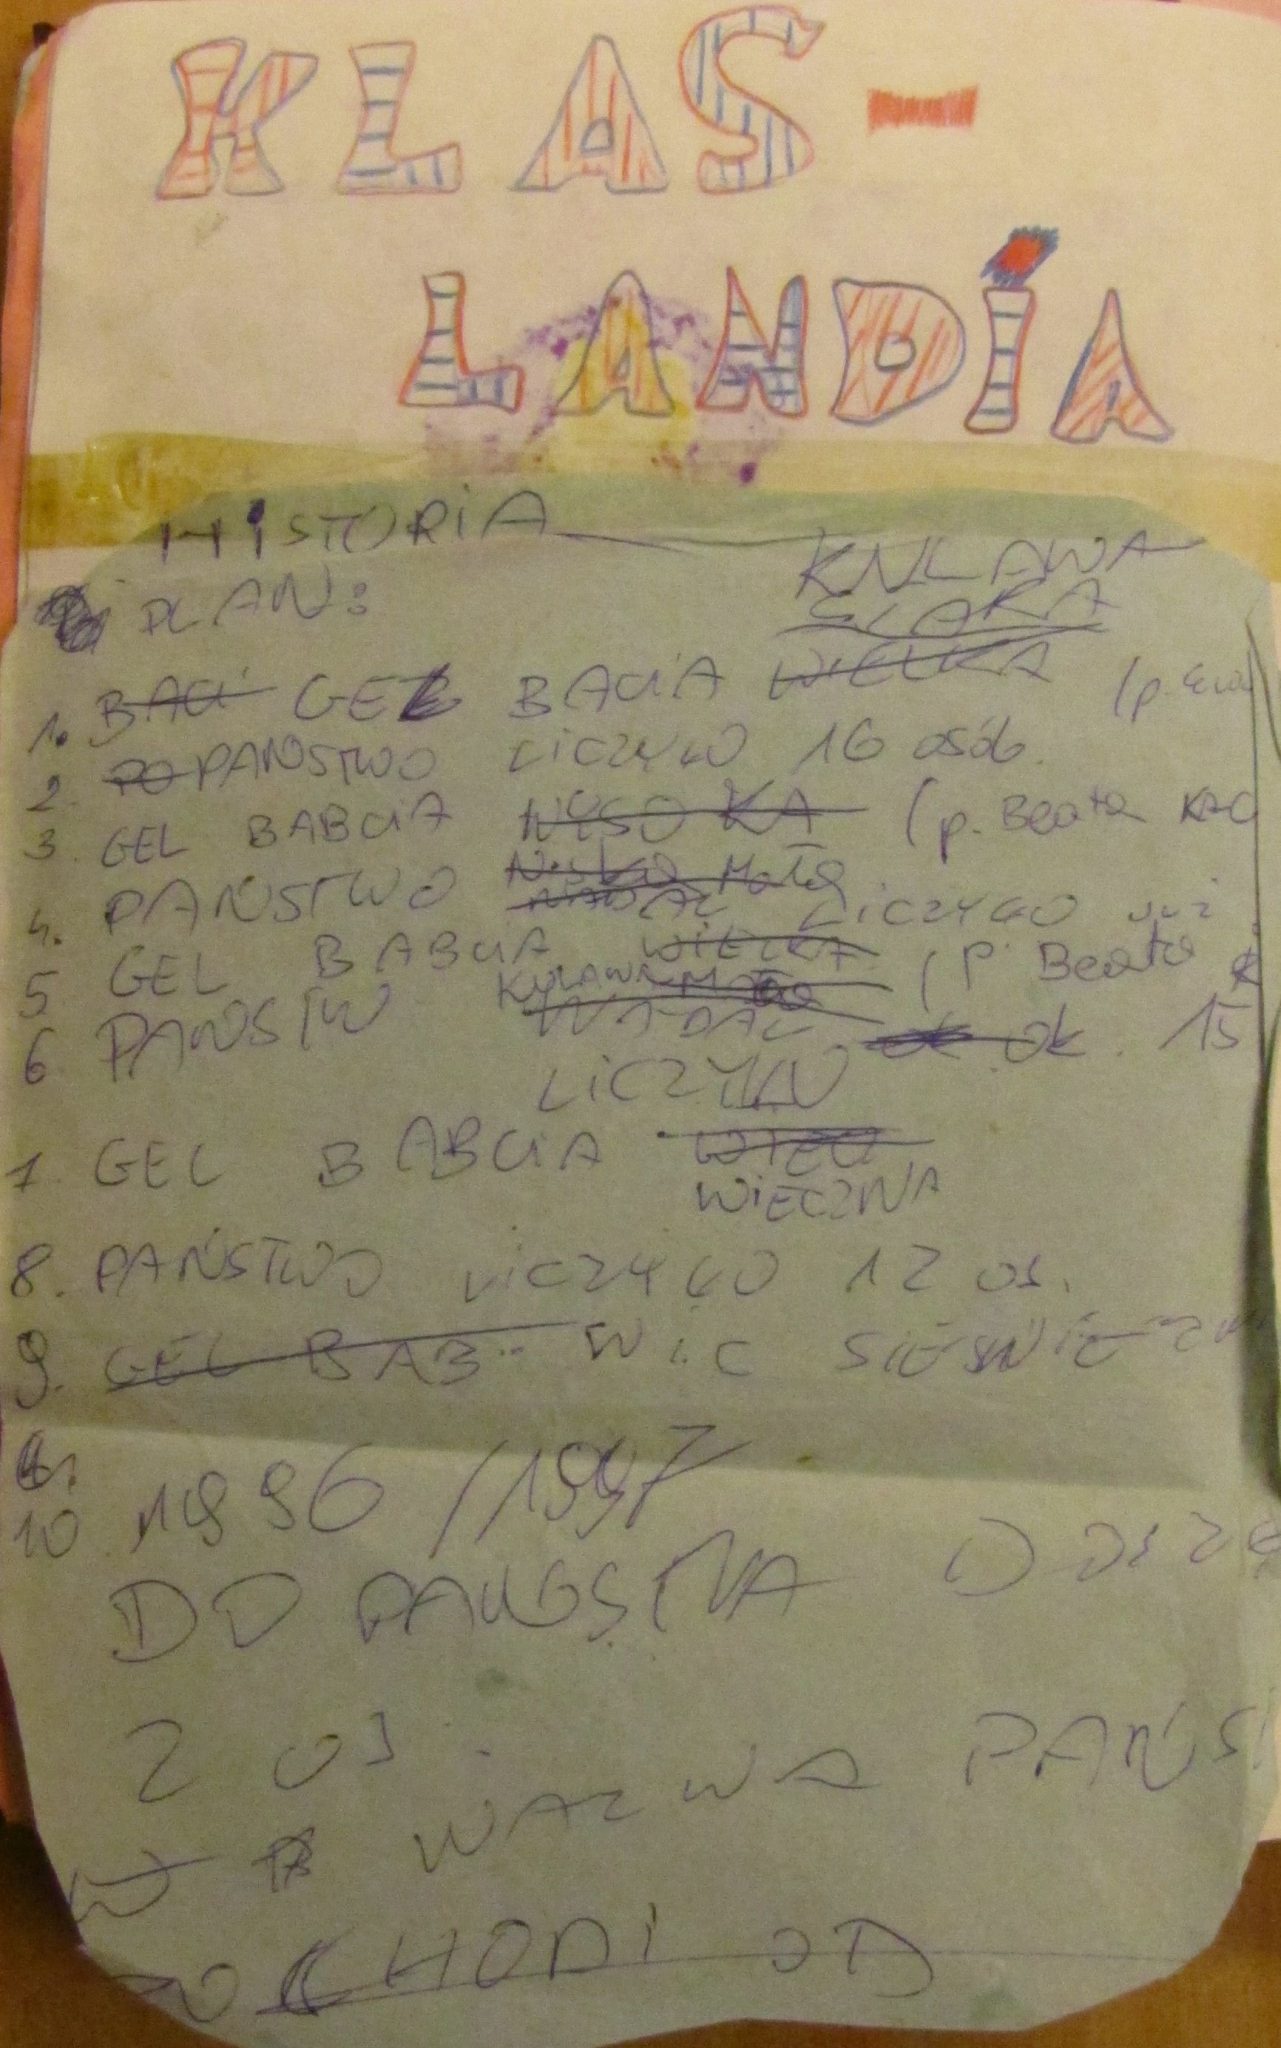 KLAS-
LANDIA
HISTORIA
PLAN:
KNLAWA
STARA
1. BACI GEL BACIA WIELKA (p. Ewa
2. PO PAŃSTWO LICZYŁO 16 osób.
3. GEL BABCIA WYSOKA (p. Beata KAC
4. PAŃSTWO NADAL LICZYŁO już
5 GEL BABCIA WIELKA (P. Beata
6 PAŃSTW NADAL ok. 15
LICZYŁO
7. GEL BABCIA
WIECZNA
8. PAŃSTWO LICZYŁO 12 os.
9. GEL BAB..
10 1996/1997
DO PAŃSTWA
2 os.
NAZWA PAŃST
CHODI OD